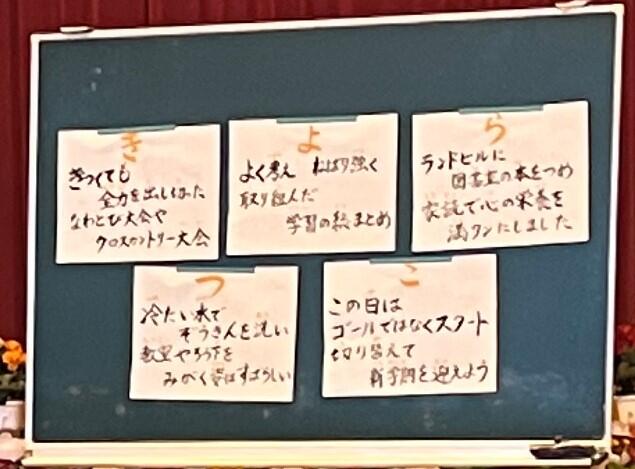 き
きつくても
全力を出しきった
なわとび大会や
クロスカントリー大会
よ
よく考え ねばり強く
取り組んだ
学習の総まとめ
ら
ランドセルに
図書室の本をつめ
家読で心の栄養を
満タンにしました
つ
冷たい水で
ぞうきんを洗い
教室やろう下を
みがく姿はすばらしい
こ
この日は
ゴールではなくスタート
切り替えて
新学期を迎えよう